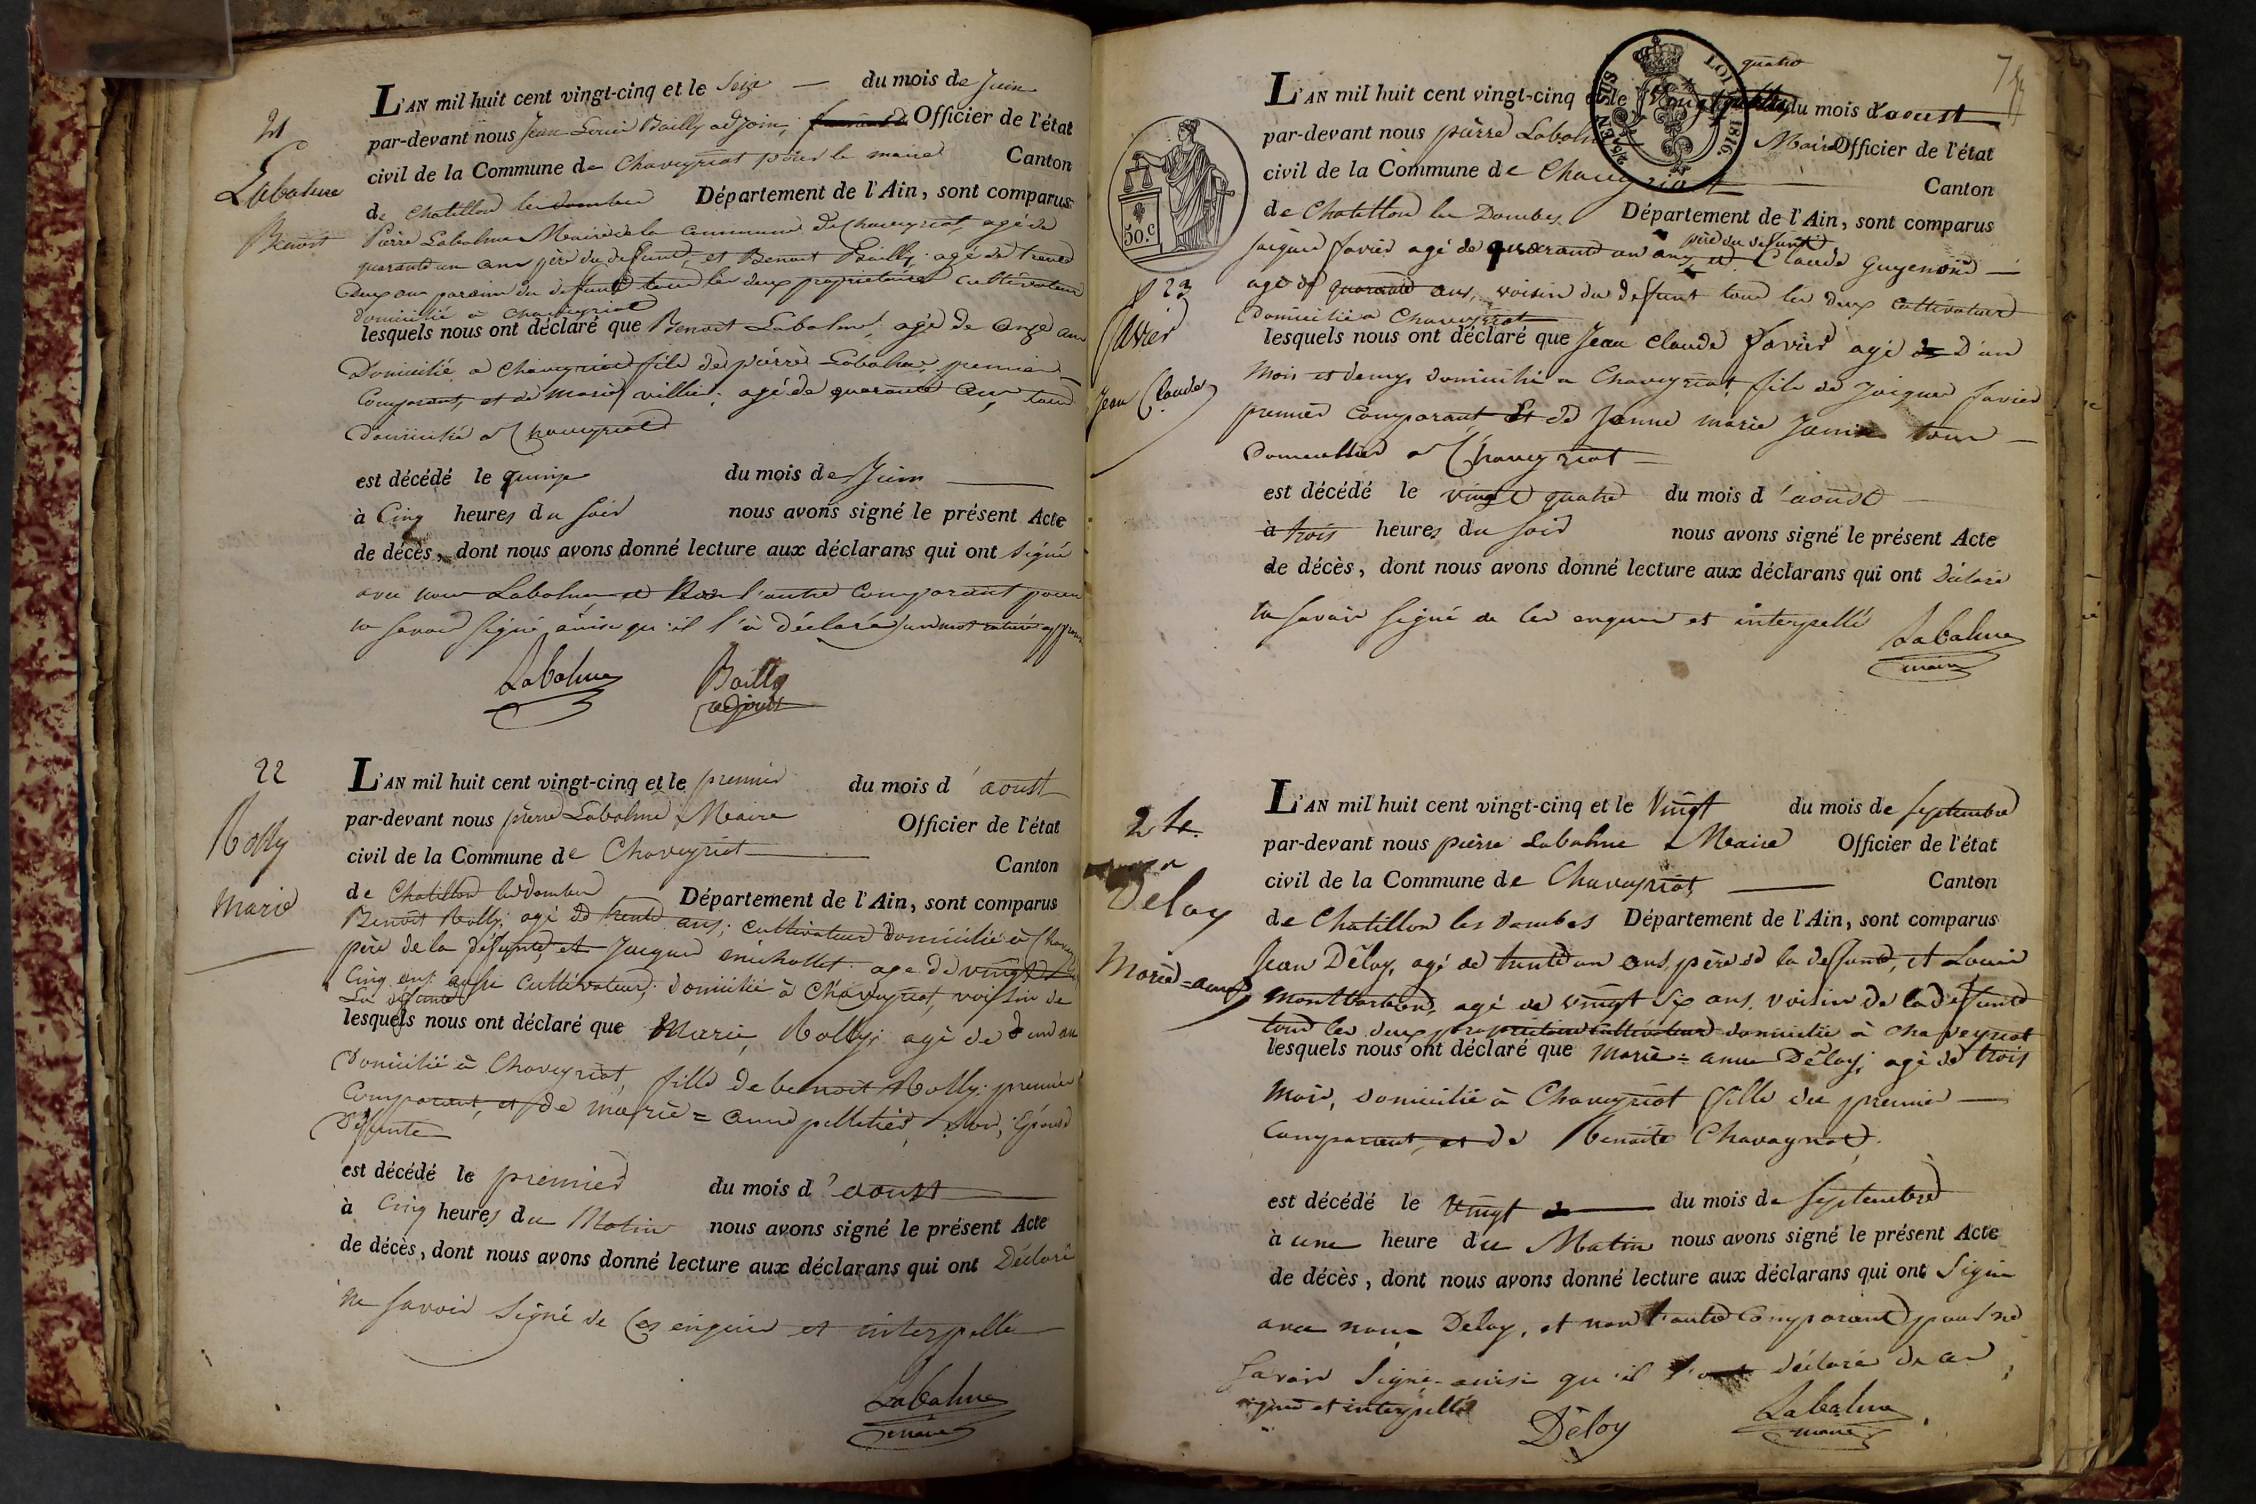 21
Labalme
Benoit
L'AN mil huit cent vingt-cinq et le Seize du mois de Juin
par-devant nous Jean Louis Bailly adjoint, Officier de l'état
civil de la Commune de Chaveyriat pour le maire Canton
de Chatillon les dombes Département de l'Ain, sont comparus
Pierre Labalme Maire de la commune de Chaveyriat, agé de
quarante un ans père du defunt, et Benoit Bailly, agé de trente
deux ans parain du defunt tous les deux propriétaires cultivateurs
domicilié à chaveyriat
lesquels nous ont déclaré que Benoit Labalme, agé de onze ans
domicilié a Chaveyriat fils de pierre Labalme, premier
Comparant, et de Marie villier, agé de quarante ans, tous
domicilié a Chaveyriat
est décédé le quinze du mois de Juin
à Cinq heures du soir nous avons signé le présent Acte
de décès, dont nous avons donné lecture aux déclarans qui ont signé
avec nous Labalme et non l'autre Comparant pour
ne savoir signé ainsi qu'il l'a déclaré un mot raturé
Labalme Bailly
adjoint
22
Rolly
Marie
L'AN mil huit cent vingt-cinq et le premier du mois d'aoust
par-devant nous pierre Labalme, Maire Officier de l'état
civil de la Commune de Chaveyriat Canton
de Chatillon les dombes Département de l'Ain, sont comparus
Benoit Rolly, agé de trente ans, cultivateur domicilié à
père de la défunte, et Jacques michollet age de vingt
Cinq ans aussi cultivateur, domicilié à Chaveyriat, voissin de
La défunte
lesquels nous ont déclaré que Marie, Rolly, agé de d'un an
domicilié à Chaveyriat, fille de benoit Rolly premier
Comparant, et de marie = anne pelletier, son, Epouse
Défunte
est décédé le premier du mois d'aoust
à Cinq heures du Matin nous avons signé le présent Acte
de décès, dont nous avons donné lecture aux déclarans qui ont Déclaré
ne savoir signé de ces enquis et interpellé
Labalme
maire
75
quatre
L'AN mil huit cent vingt-cinq et le du mois d'aoust
par-devant nous pierre Labalme Maire Officier de l'état
civil de la Commune de Chaveyriat Canton
de Chatillon les Dombes Département de l'Ain, sont comparus
père du defunt
Jacques favier agé de quarant un ans, et Claude Guyenoud
agé de quarante ans, voisin du defunt tous les deux cultivateurs
domicilié a Chaveyriat
TIMBRE
50.C
LOI 1816.
23
favier
Jean Claude
lesquels nous ont déclaré que Jean Claude favier agé d'un
mois et demy domicilié a Chaveyriat fils de Jacques favier
premier comparant Et de Jenne marie tous
domicilliés a Chaveyriat
est décédé le vingt quatre du mois d'aoust
à trois heures du soir nous avons signé le présent Acte
de décès, dont nous avons donné lecture aux déclarans qui ont Déclaré
ne savoir signé de ces enquis et interpellé
Labalme
maire
24.
Deloy
Marie=anne
L'AN mil huit cent vingt-cinq et le Vingt du mois de septembre
par-devant nous pierre Labalme Maire Officier de l'état
civil de la Commune de Chaveyriat, Canton
de Chatillon les dombes Département de l'Ain, sont comparus
Jean Déloy, agé de trente un ans, père de la defunte, et Louis
Montbarbon, agé de vingt six ans, voisin de la defunte
tous les deux propriétaires cultivateurs domicilié à chaveyriat
lesquels nous ont déclaré que Marie=anne Déloy, agé de trois
mois, domicilié à Chaveyriat fille du premier
comparant, et de Benoite Chavagnat,
est décédé le Vingt du mois de septembre
à une heure du Matin nous avons signé le présent Acte
de décès, dont nous avons donné lecture aux déclarans qui ont signé
avec nous Deloy, et non l'autre Comparant pour ne
savoir signé ainsi qu'il l'a déclaré de ce
enquis et interpellé
Déloy Labalme
maire